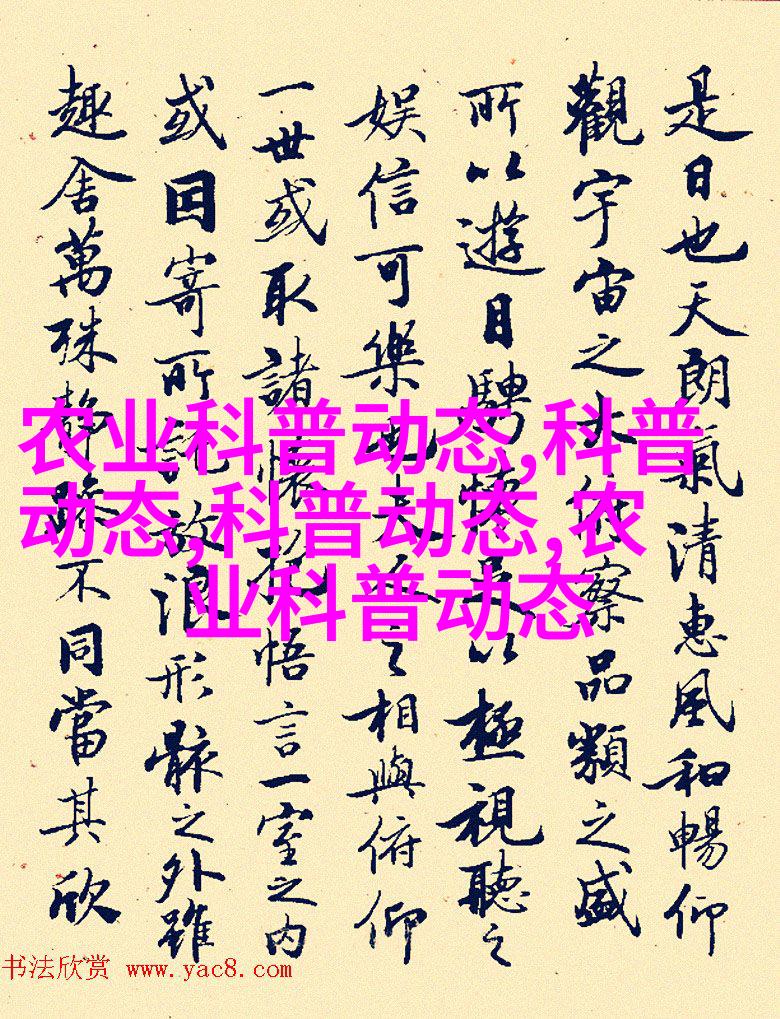 是日也天朗氣清惠風和暢仰
觀宇宙之大俯察品類之盛
所以遊目騁懷足以極視聽之
娱信可樂也夫人之相與俯仰
一世或取諸懷抱悟言一室之内
或因寄所託放浪形骸之外雖
趣舍萬殊静躁不同當其欣
农业科普动态,科普
动态,科普动态,农
业科普动态
书法欣赏 www.yac8.com